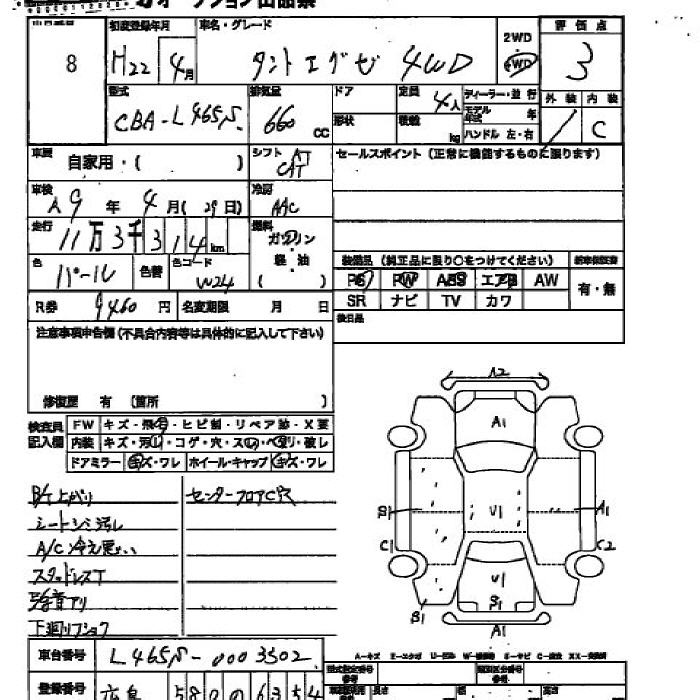 オークション出品票
8
初度登録年月 車名・グレード
H22 4月 タントエグゼ 4WD
2WD
4WD
評価点
3
型式 排気量 ドア 定員 4人
ディーラー・並行
モデル年式 年
外装 内装
CBA-L465S 660 CC 形状 積載 kg
ハンドル 左・右
C
車歴 自家用・( )
シフト AT
CAT
セールスポイント(正常に機能するものに限ります)
車検 冷房
9年 4月(29日) AAC
走行 燃料
11万3千314km ガソリン
軽・油
( )
色 パール 色替 色コード W24
装備品(純正品に限り○をつけてください) 新車保証書
PS PW ABS エアB AW 有・無
SR ナビ TV カワ
R券 9460円 名変期限 月 日
後日品
注意事項申告欄(不具合内容等は具体的に記入して下さい)
修復歴 有 (箇所 )
検査員記入欄
FW キズ・飛石・ヒビ割・リペア跡・X要
内装 キズ・汚れ・コゲ・穴・スレ・ベタリ・破レ
ドアミラー キズ・ワレ ホイール・キャップ キズ・ワレ
B/T上がり センターフロアC穴
シートシミ汚れ
A/C冷え悪い
スタッドレスT
異音アリ
下廻りフショク
A2
A1
A1
V1
C1 C2
V1
S1
B1
A1
A-キズ E-エクボ U-凹み W-補修跡 S-サビ C-腐食 XX-交換済
車台番号 L465S-0003502
型式指定番号 類別区分番号
登録番号 広島 580 0 6354
長さ